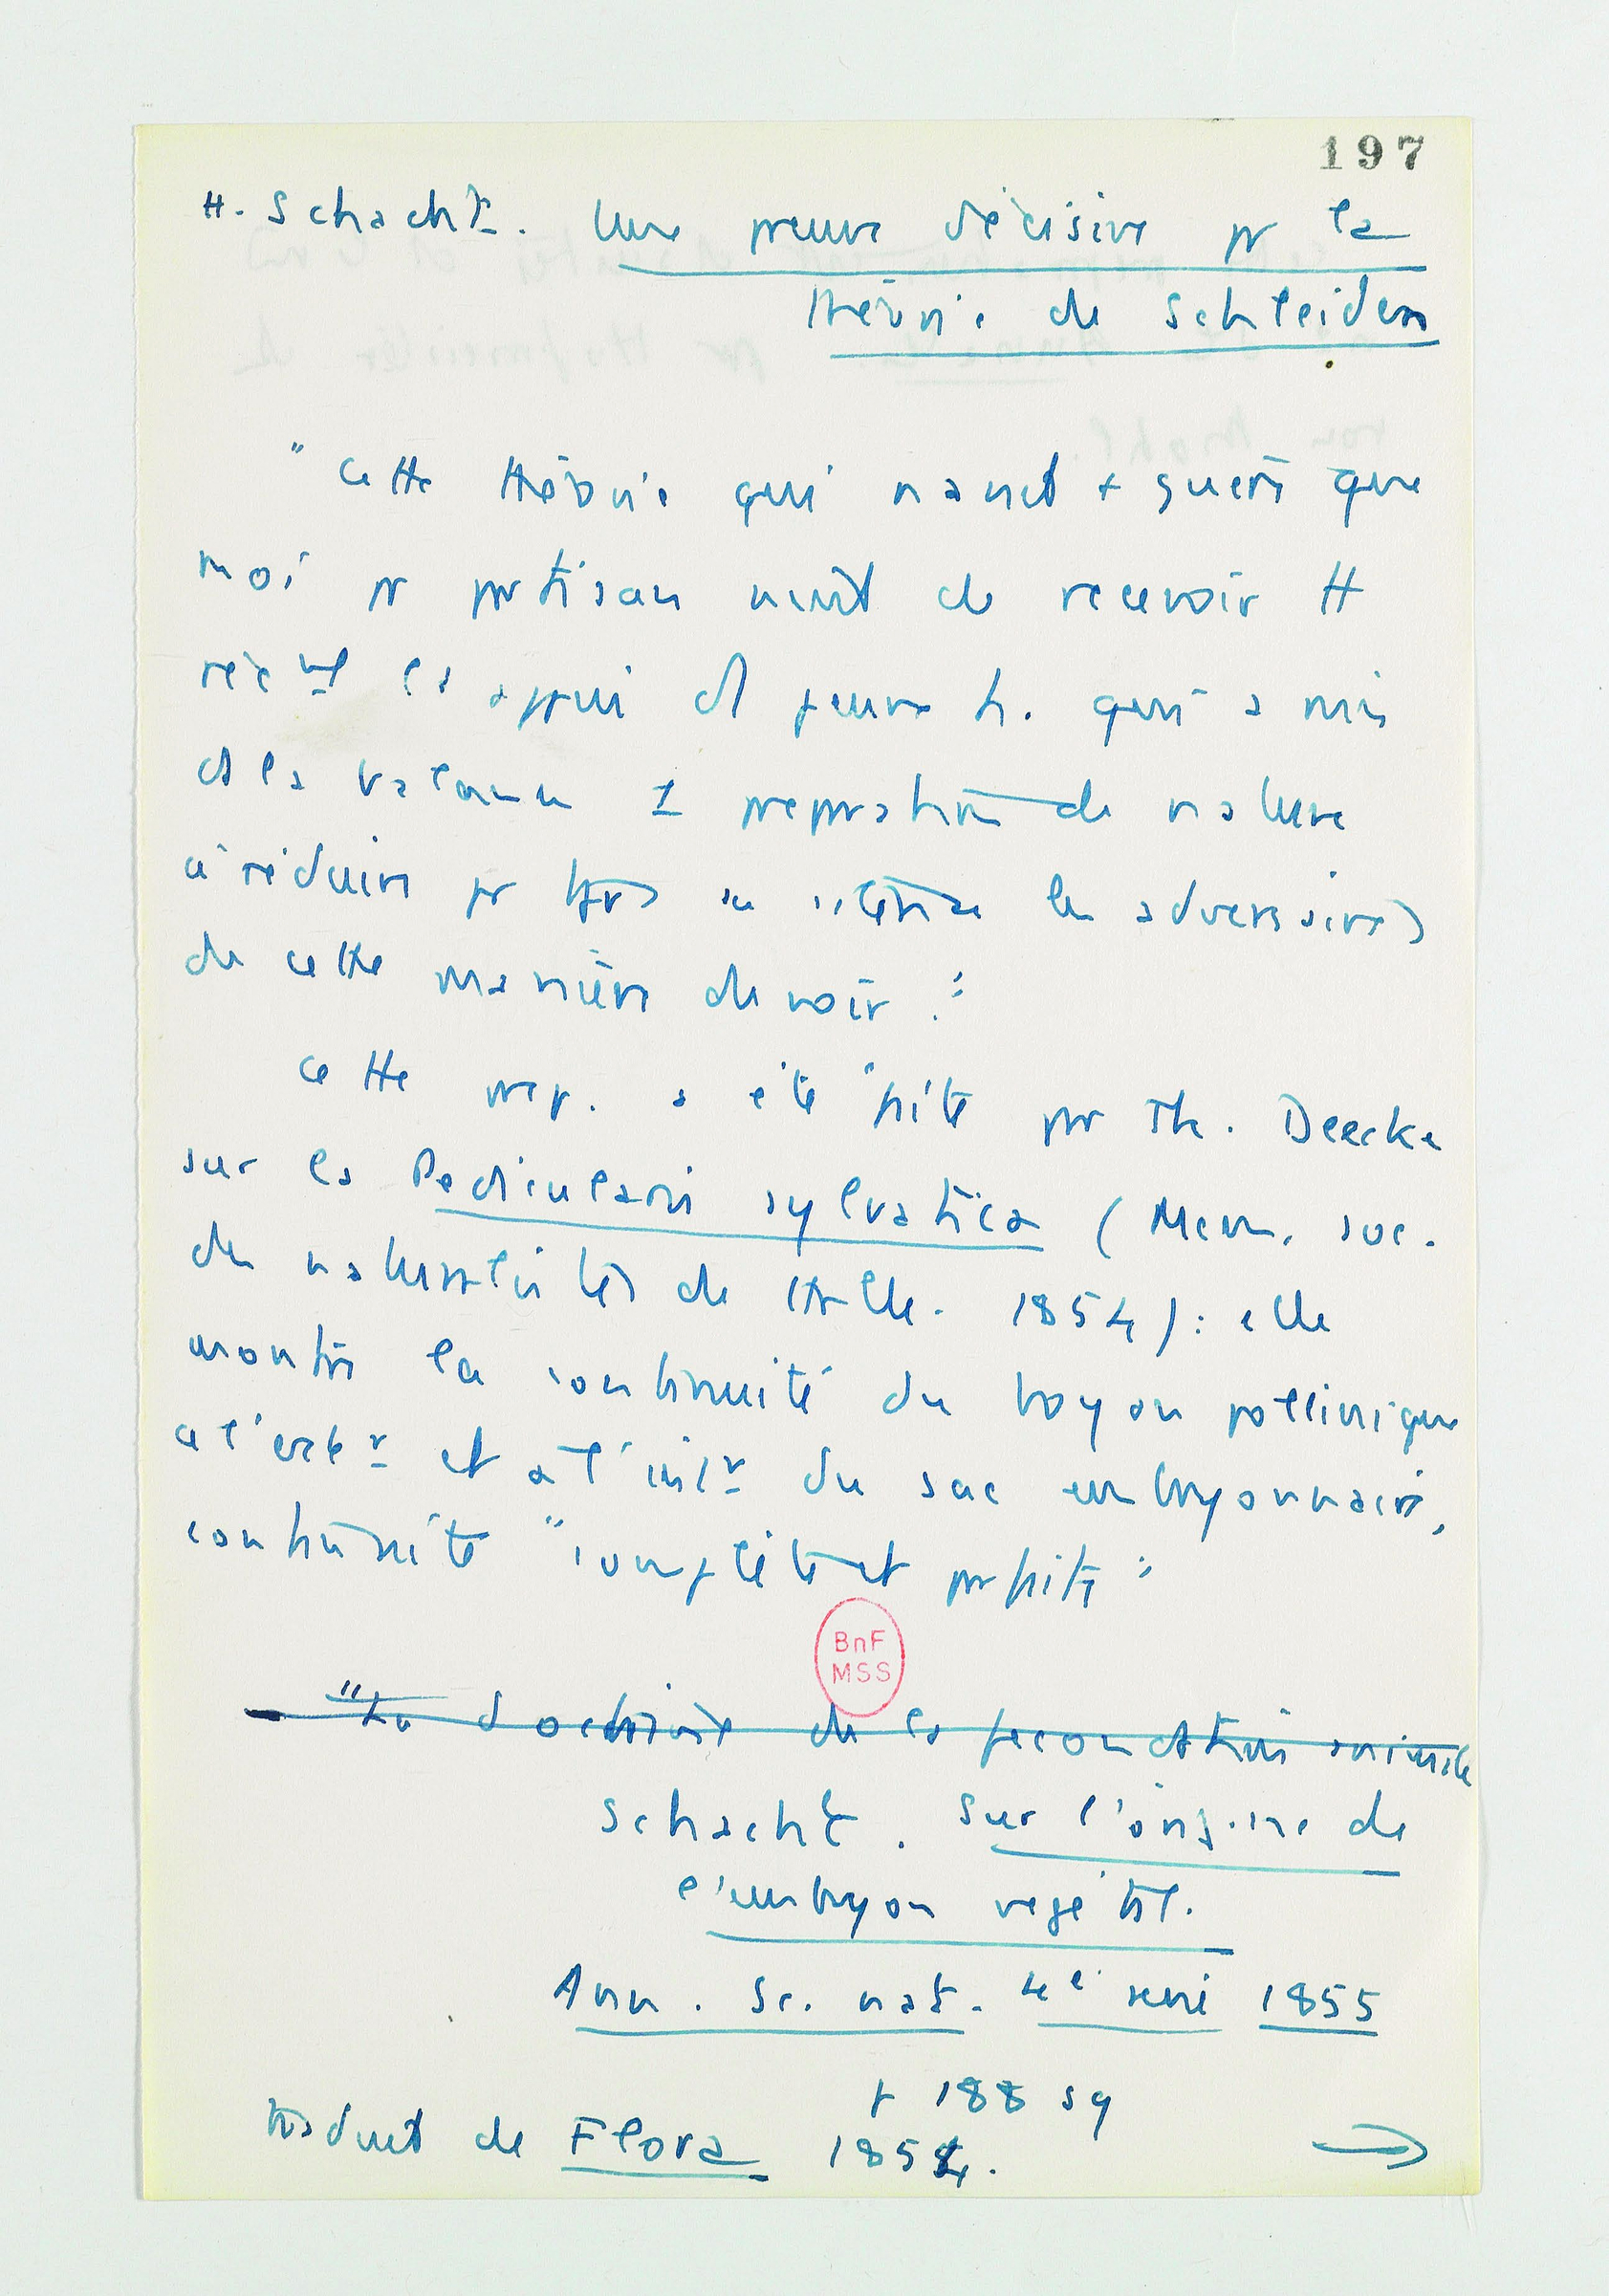 197
H. Schacht. Une preuve décisive pr la
théorie de Schleiden
"Cette théorie qui n'avait + guère que
moi pr partisan vient de recevoir tt
réct la appui d jeune h. qui a mis
ds la balance 1 preparation de nature
à réduire pr tjrs au silence les adversaires
de cette manière de voir."
Cette prep. a été faite par Th. Deecke
sur la Pedicularis sylvatica (Mem. soc.
des naturalistes de Halle. 1854) : elle
montre la continuité du boyon pollinique
à l'extr et à l'intr du sac embryonnaire,
continuité "complète et parfaite"
BnF
MSS
"La doctrine de la fecondation animale
Schacht. Sur l'origine de
l'embryon végétal.
Ann. Sc. nat. 4e serie 1855
p 188 sq
traduit de Flora 1854.
→